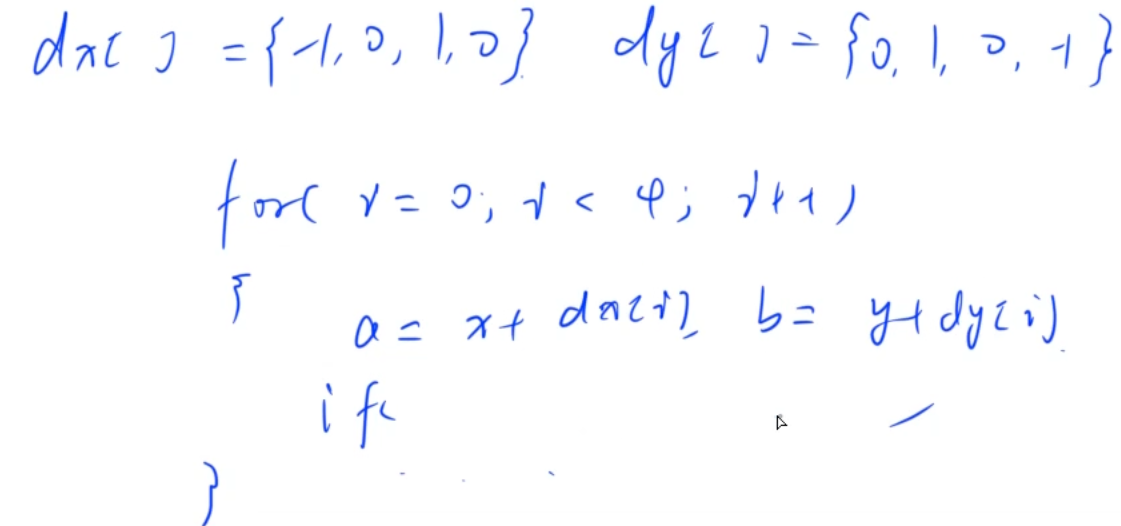 dx[ ] = {-1, 0, 1, 0} dy[ ] = {0, 1, 0, -1}
for( i = 0; i < 4; i++)
{
a = x + dx[i], b = y + dy[i].
if(
}